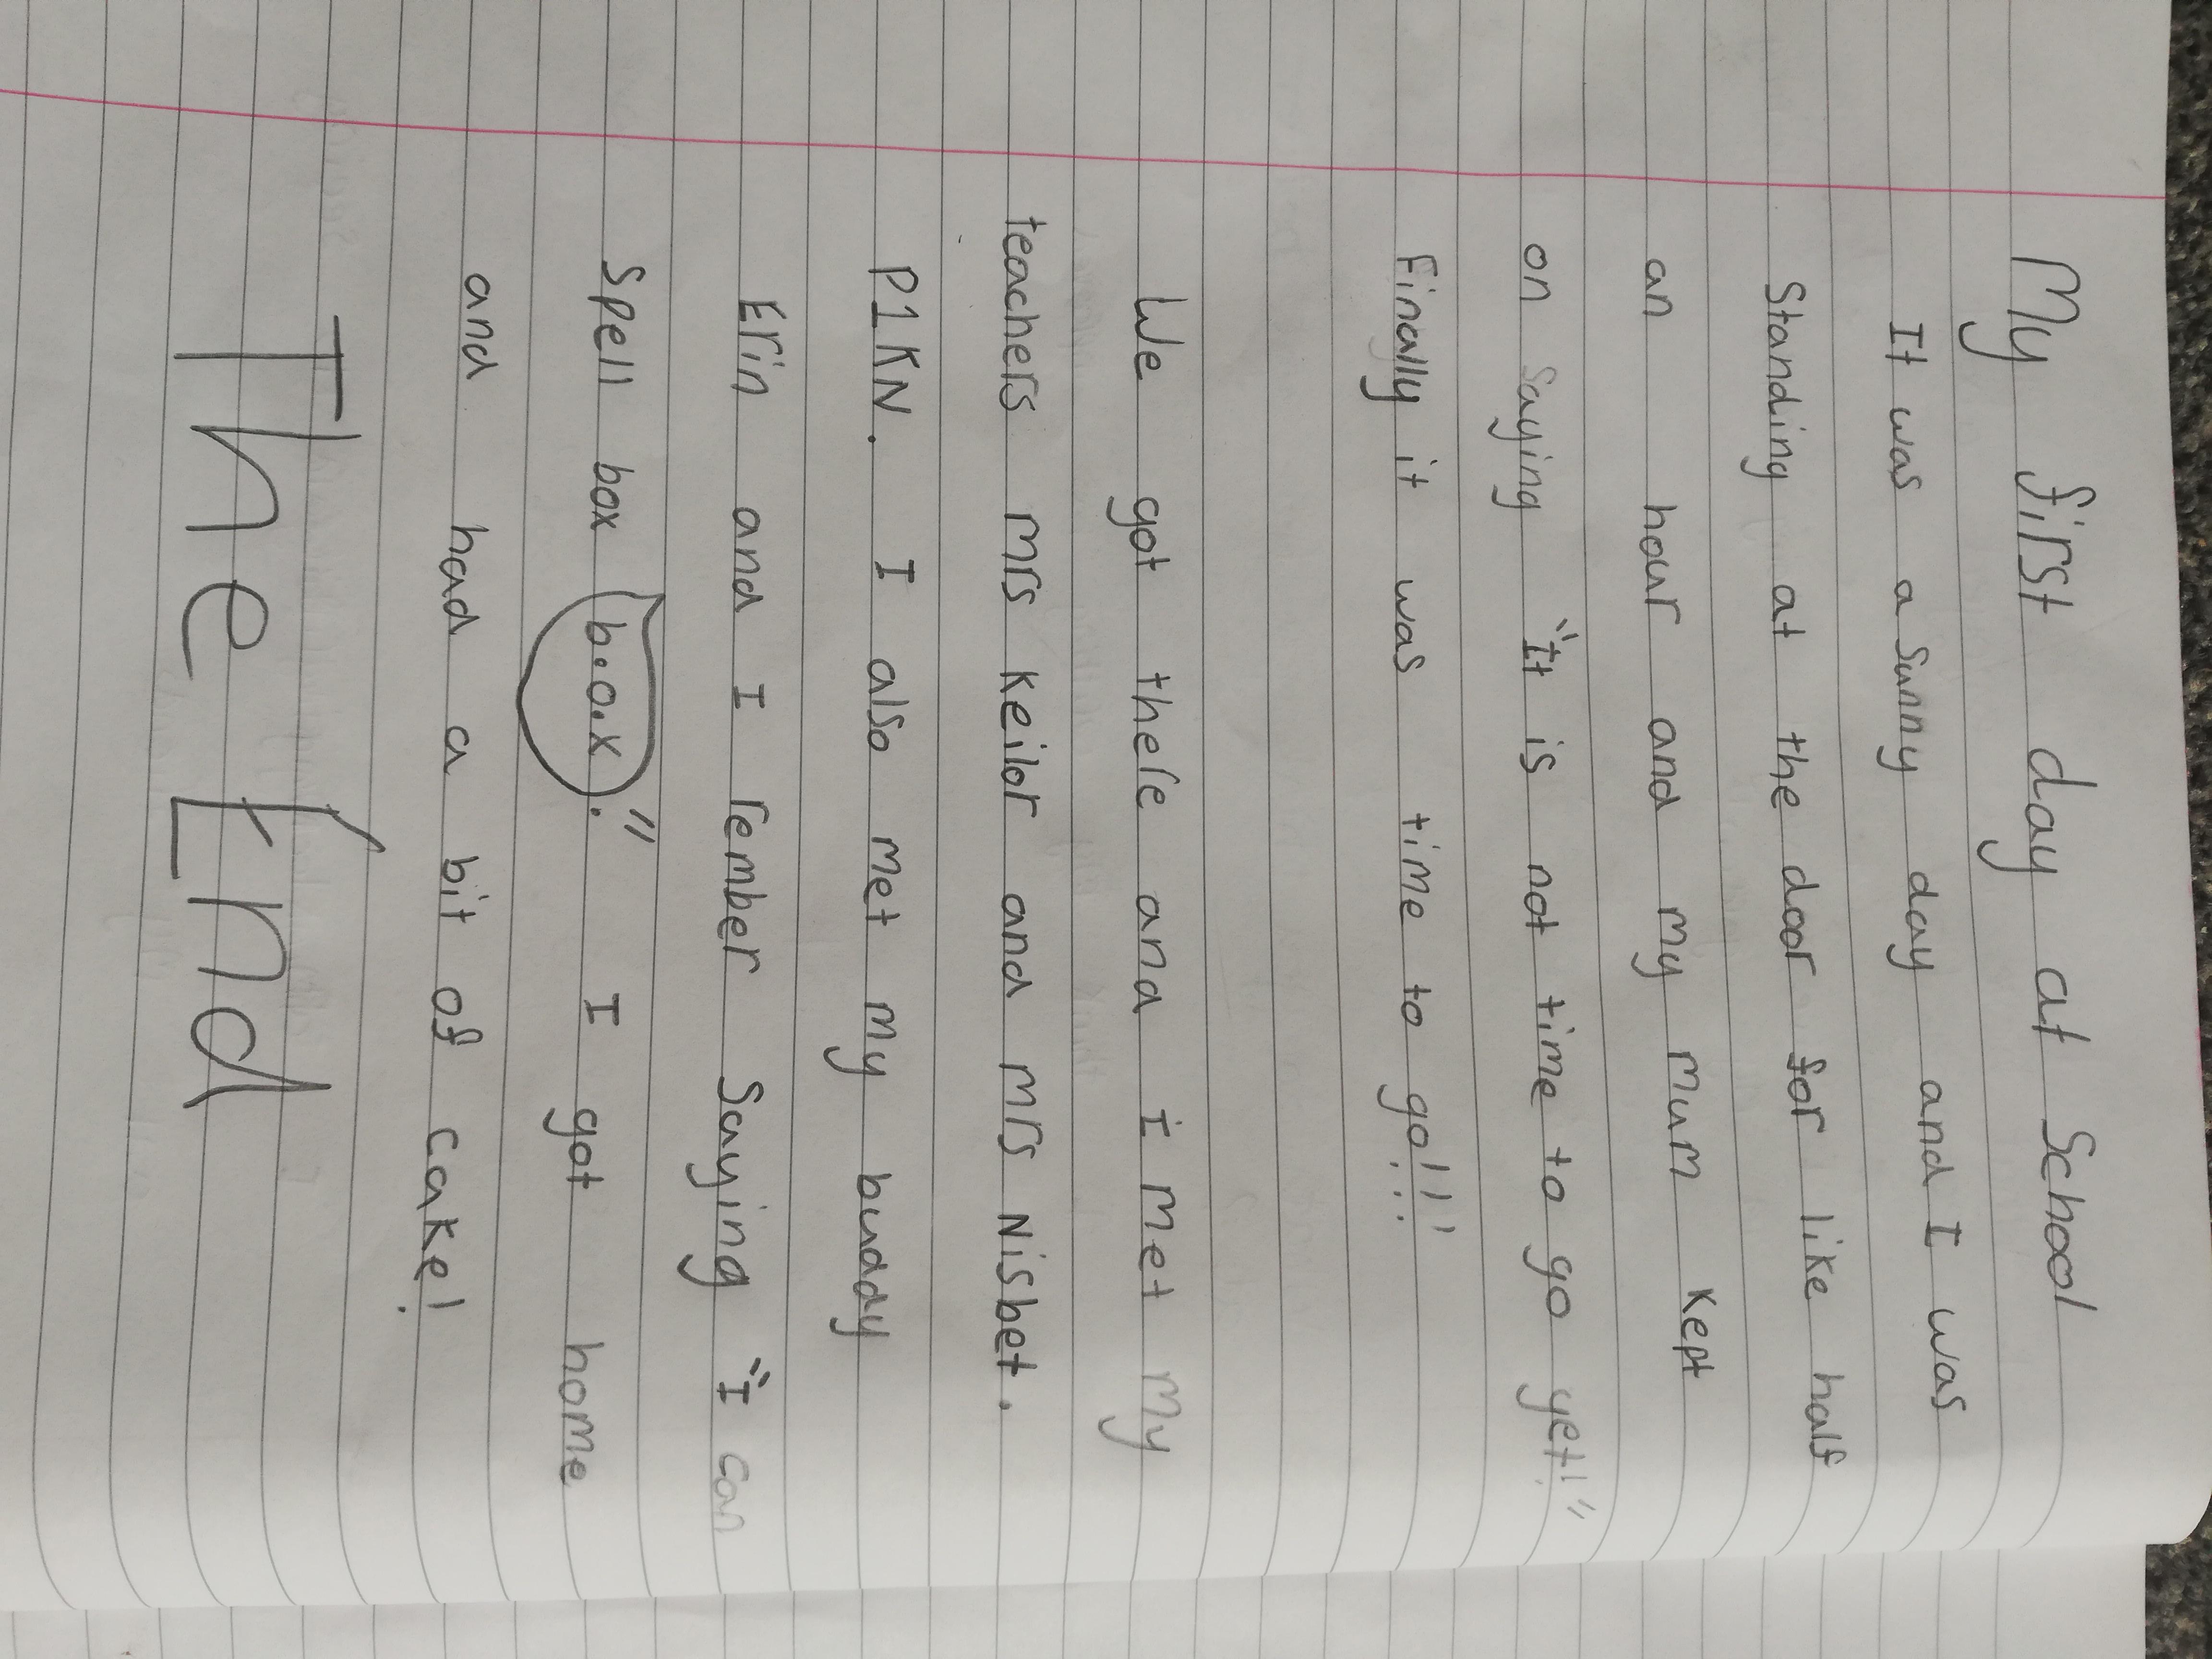 My first day at School
It was a Sunny day and I was
Standing at the door for like half
an hour and my mum kept
on Saying "It is not time to go yet!"
Finally it was time to go!!!
We got there and i met my
teachers mrs Keilor and mrs Nisbet.
P1KN. I also met my buddy
Erin and I rember Saying "I can
Spell box b.o.x." I got home
and had a bit of cake!
The End